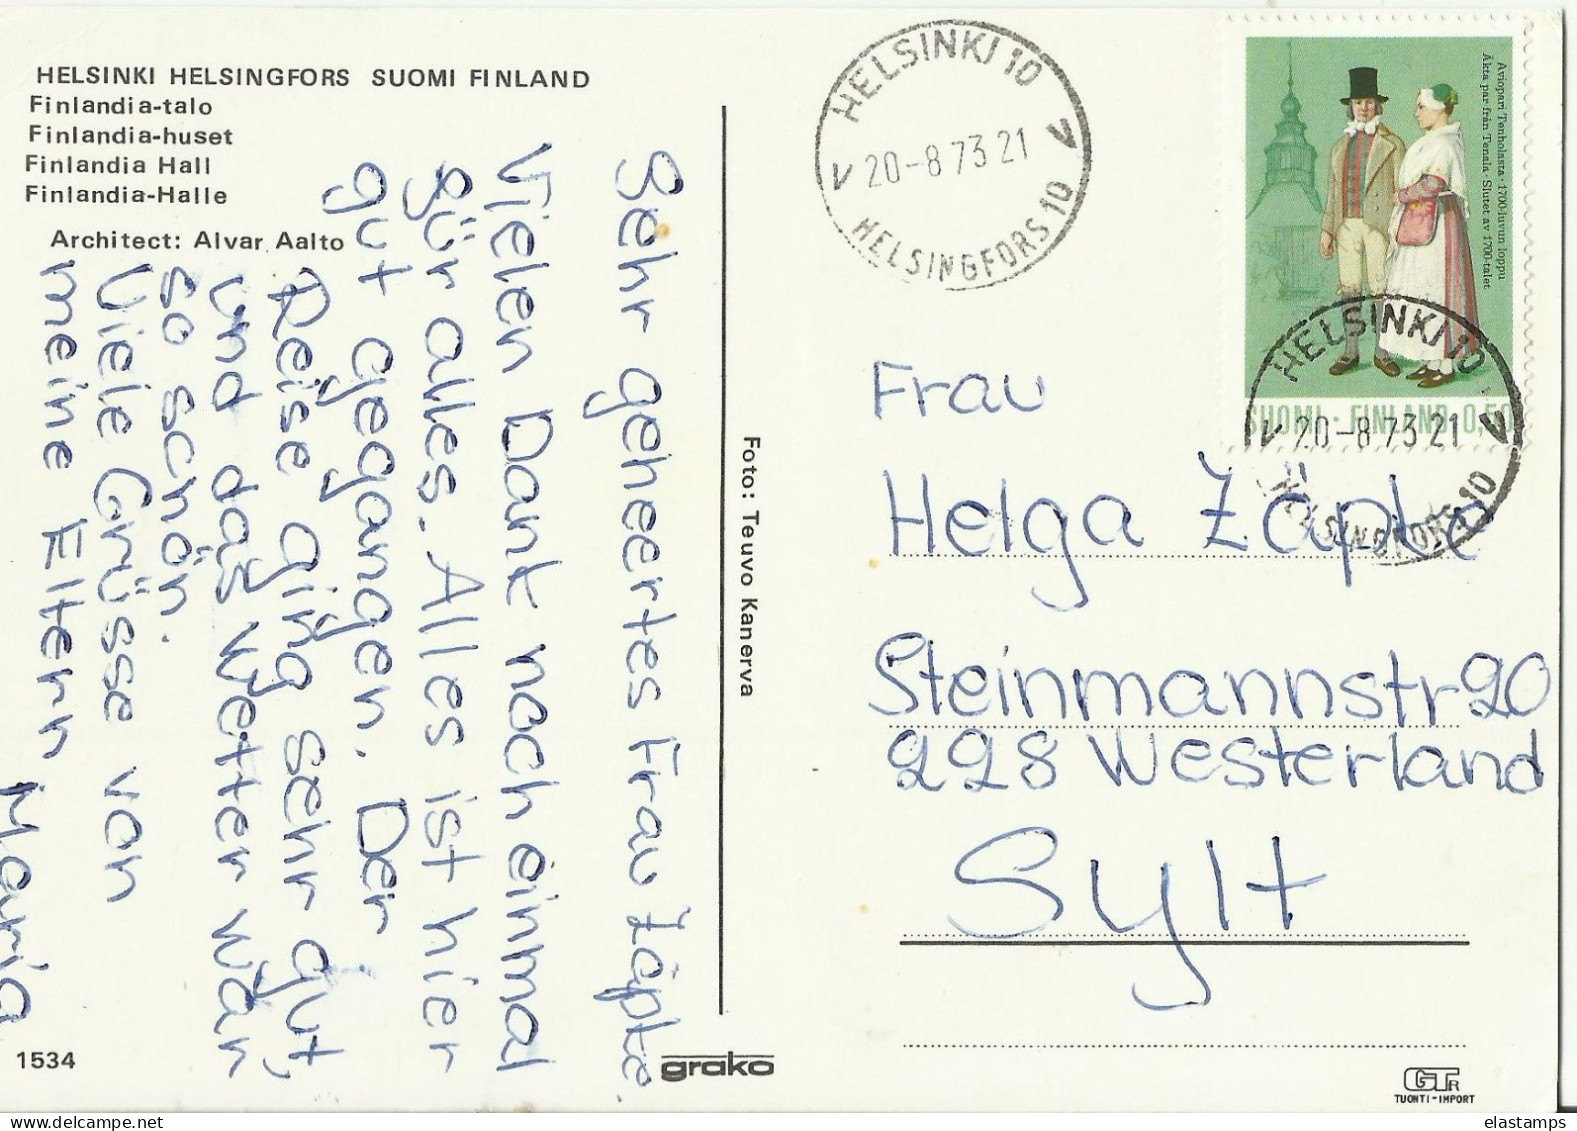 HELSINKI HELSINGFORS SUOMI FINLAND
Finlandia-talo
Finlandia-huset
Finlandia Hall
Finlandia-Halle
Architect: Alvar Aalto
Sehr geheertes Frau Zäpke.
Vielen Dank noch einmal
für alles. Alles ist hier
gut gegangen. Der
Reise ging sehr gut,
und das Wetter war
so schön.
Viele Grüsse von
meine Eltern
Maria
1534
Foto: Teuvo Kanerva
grako
HELSINKI 10
20-8 73 21
HELSINGFORS 10
Aviopari Tenholasta · 1700-luvun loppu
Äkta par från Tenala · Slutet av 1700-talet
SUOMI · FINLAND 0,50
HELSINKI 10
20-8 73 21
HELSINGFORS 10
Frau
Helga Zäpke
Steinmannstr 20
228 Westerland
Sylt
GTR
TUONTI-IMPORT
elastamps